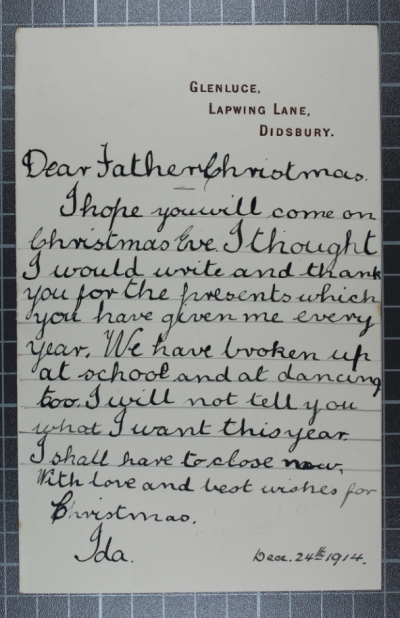 GLENLUCE,
LAPWING LANE,
DIDSBURY.
Dear Father Christmas.
I hope you will come on
Christmas Eve. I thought
I would write and thank
you for the presents which
you have given me every
year. We have broken up
at school and at dancing
too. I will not tell you
what I want this year.
I shall have to close now,
With love and best wishes for
Christmas.
Ida.
Dec. 24th 1914.